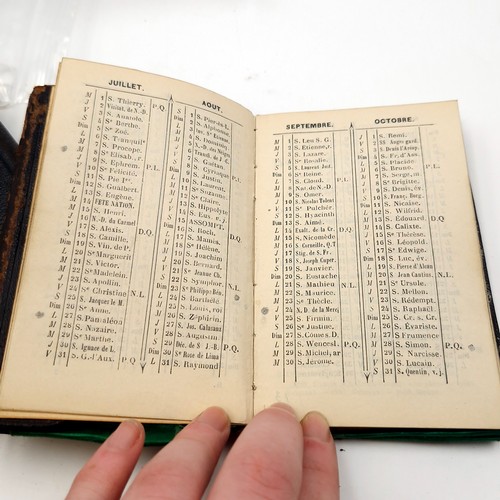 JUILLET.
M 1 S. Thierry. P.Q.
M 2 Visitat. de N.-D.
J 3 S. Anatole.
V 4 Se Berthe.
S 5 Se Zoé.
Dim 6 S. Tranquil
L 7 S. Procope.
M 8 S. Elisab., r
M 9 S. Ephrem. P.L.
J 10 Se Félicité.
V 11 S. Pie Ier.
S 12 S. Gualbert.
Dim 13 S. Eugène.
L 14 FÊTE NATION.
M 15 S. Henri.
M 16 N.-D. du Carmel
J 17 S. Alexis. D.Q.
V 18 S. Camille.
S 19 S. Vin. de
Dim 20 Se Marguerit
L 21 S. Victor.
M 22 Se Madelein.
M 23 S. Apollin.
J 24 Se Christine N.L.
V 25 S. Jacques le M.
S 26 Se Anne.
Dim 27 S. Pantaléon
L 28 S. Nazaire.
M 29 Se Marthe.
M 30 S. Ignace de L.
J 31 S. G.-d'Aux. P.Q
AOUT.
V 1 S. Pier.-ès-L.
S 2 S. Alphonse
Dim
L 4 S. Dominiq.
M
M 6 Transf. de J.-C.
J 7 S. Gaétan.
V 8 S. Cyriaque P.L.
S
Dim 10 S. Laurent.
L
M 12 Se Claire.
M 13 S. Hippolyte
J 14 S. Eus.
V 15 ASSOMPT.
S 16 S. Roch. D.Q.
Dim 17 S. Mamès.
L 18 Se Hélène
M
M 20 S. Bernard.
J 21 Se Jeanne Ch.
V 22 S. Symphor.
S 23 S. Philippe Bén. N.L.
Dim 24 S. Barthélé.
L 25 S. Louis, roi
M 26 S. Zéphirin.
M 27 S. Jos. Calasanz
J 28 S. Augustin.
V 29 Déc. de S. J.-B. P.Q.
S 30 Se Rose de Lima
Dim 31 S. Raymond
SEPTEMBRE.
L 1 S. Leu S. G.
M 2 S. Etienne, r.
M 3 S. Lazare.
J 4 Se Rosalie.
V 5 S. Laurent Just.
S 6 S. Onésiph.
Dim 7 S. Cloud. P.L.
L 8 Nat. de N.-D.
M 9 S. Omer.
M 10 S. Nicolas Tolent
J 11 Se Pulchér.
V 12 S. Hyacinth
S 13 S. Aimé.
Dim 14 Exalt. de la Cr. D.Q.
L 15 S. Nicomède
M 16 S. Corneille, Q.T
M 17 Stig. de S. Fr.
J 18 S. Joseph Cupert.
V 19 S. Janvier.
S 20 S. Eustache
Dim 21 S. Mathieu N.L.
L 22 S. Maurice.
M 23 Se Thècle.
M 24 N.D. de la Merc.
J 25 S. Firmin.
V 26 Se Justine.
S 27 S. Côme s. D.
Dim 28 S. Wencesl. P.Q.
L 29 S. Michel, ar
M 30 S. Jérome.
OCTOBRE.
M 1 S. Remi.
J 2 SS. Anges gard.
V 3 S. Denis l'Aréop.
S 4 S. Fr. d'Ass.
Dim 5 S. Placide.
L 6 S. Bruno. P.L.
M 7 S. Serge, m
M 8 Se Brigitte.
J 9 S. Denis, év.
V 10 S. Franç. Borg.
S 11 S. Nicaise.
Dim 12 S. Wilfrid.
L 13 S. Edouard. D.Q.
M 14 S. Caliste.
M 15 Se Thérèse.
J 16 S. Léopold.
V 17 Se Edwige.
S 18 S. Luc, év.
Dim 19 S. Pierre d'Alcan
L 20 S. Jean Cantius. N.L.
M 21 Se Ursule.
M 22 S. Mellon.
J 23 S. Rédempt.
V 24 S. Raphaël
S 25 S. Cr. s. Cr.
Dim 26 S. Evariste
L 27 S. Frumence
M 28 S. Simon. P.Q.
M 29 S. Narcisse.
J 30 S. Lucain.
V 31 S. Quentin, v. j.